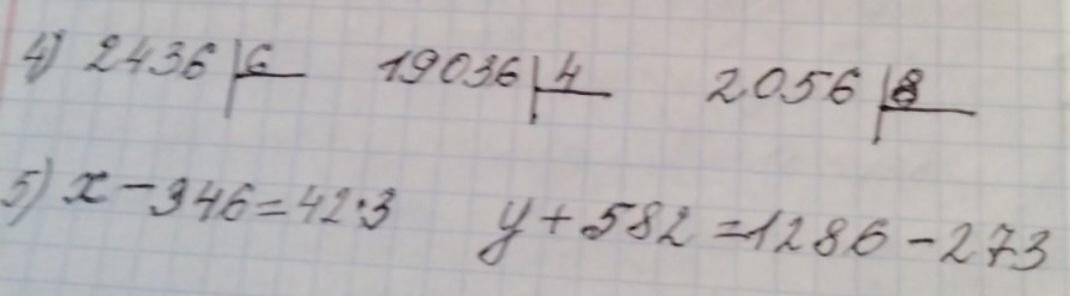 4) 2436 | 6 19036 | 4 2056 | 8
5) x - 346 = 42 · 3 y + 582 = 1286 - 273